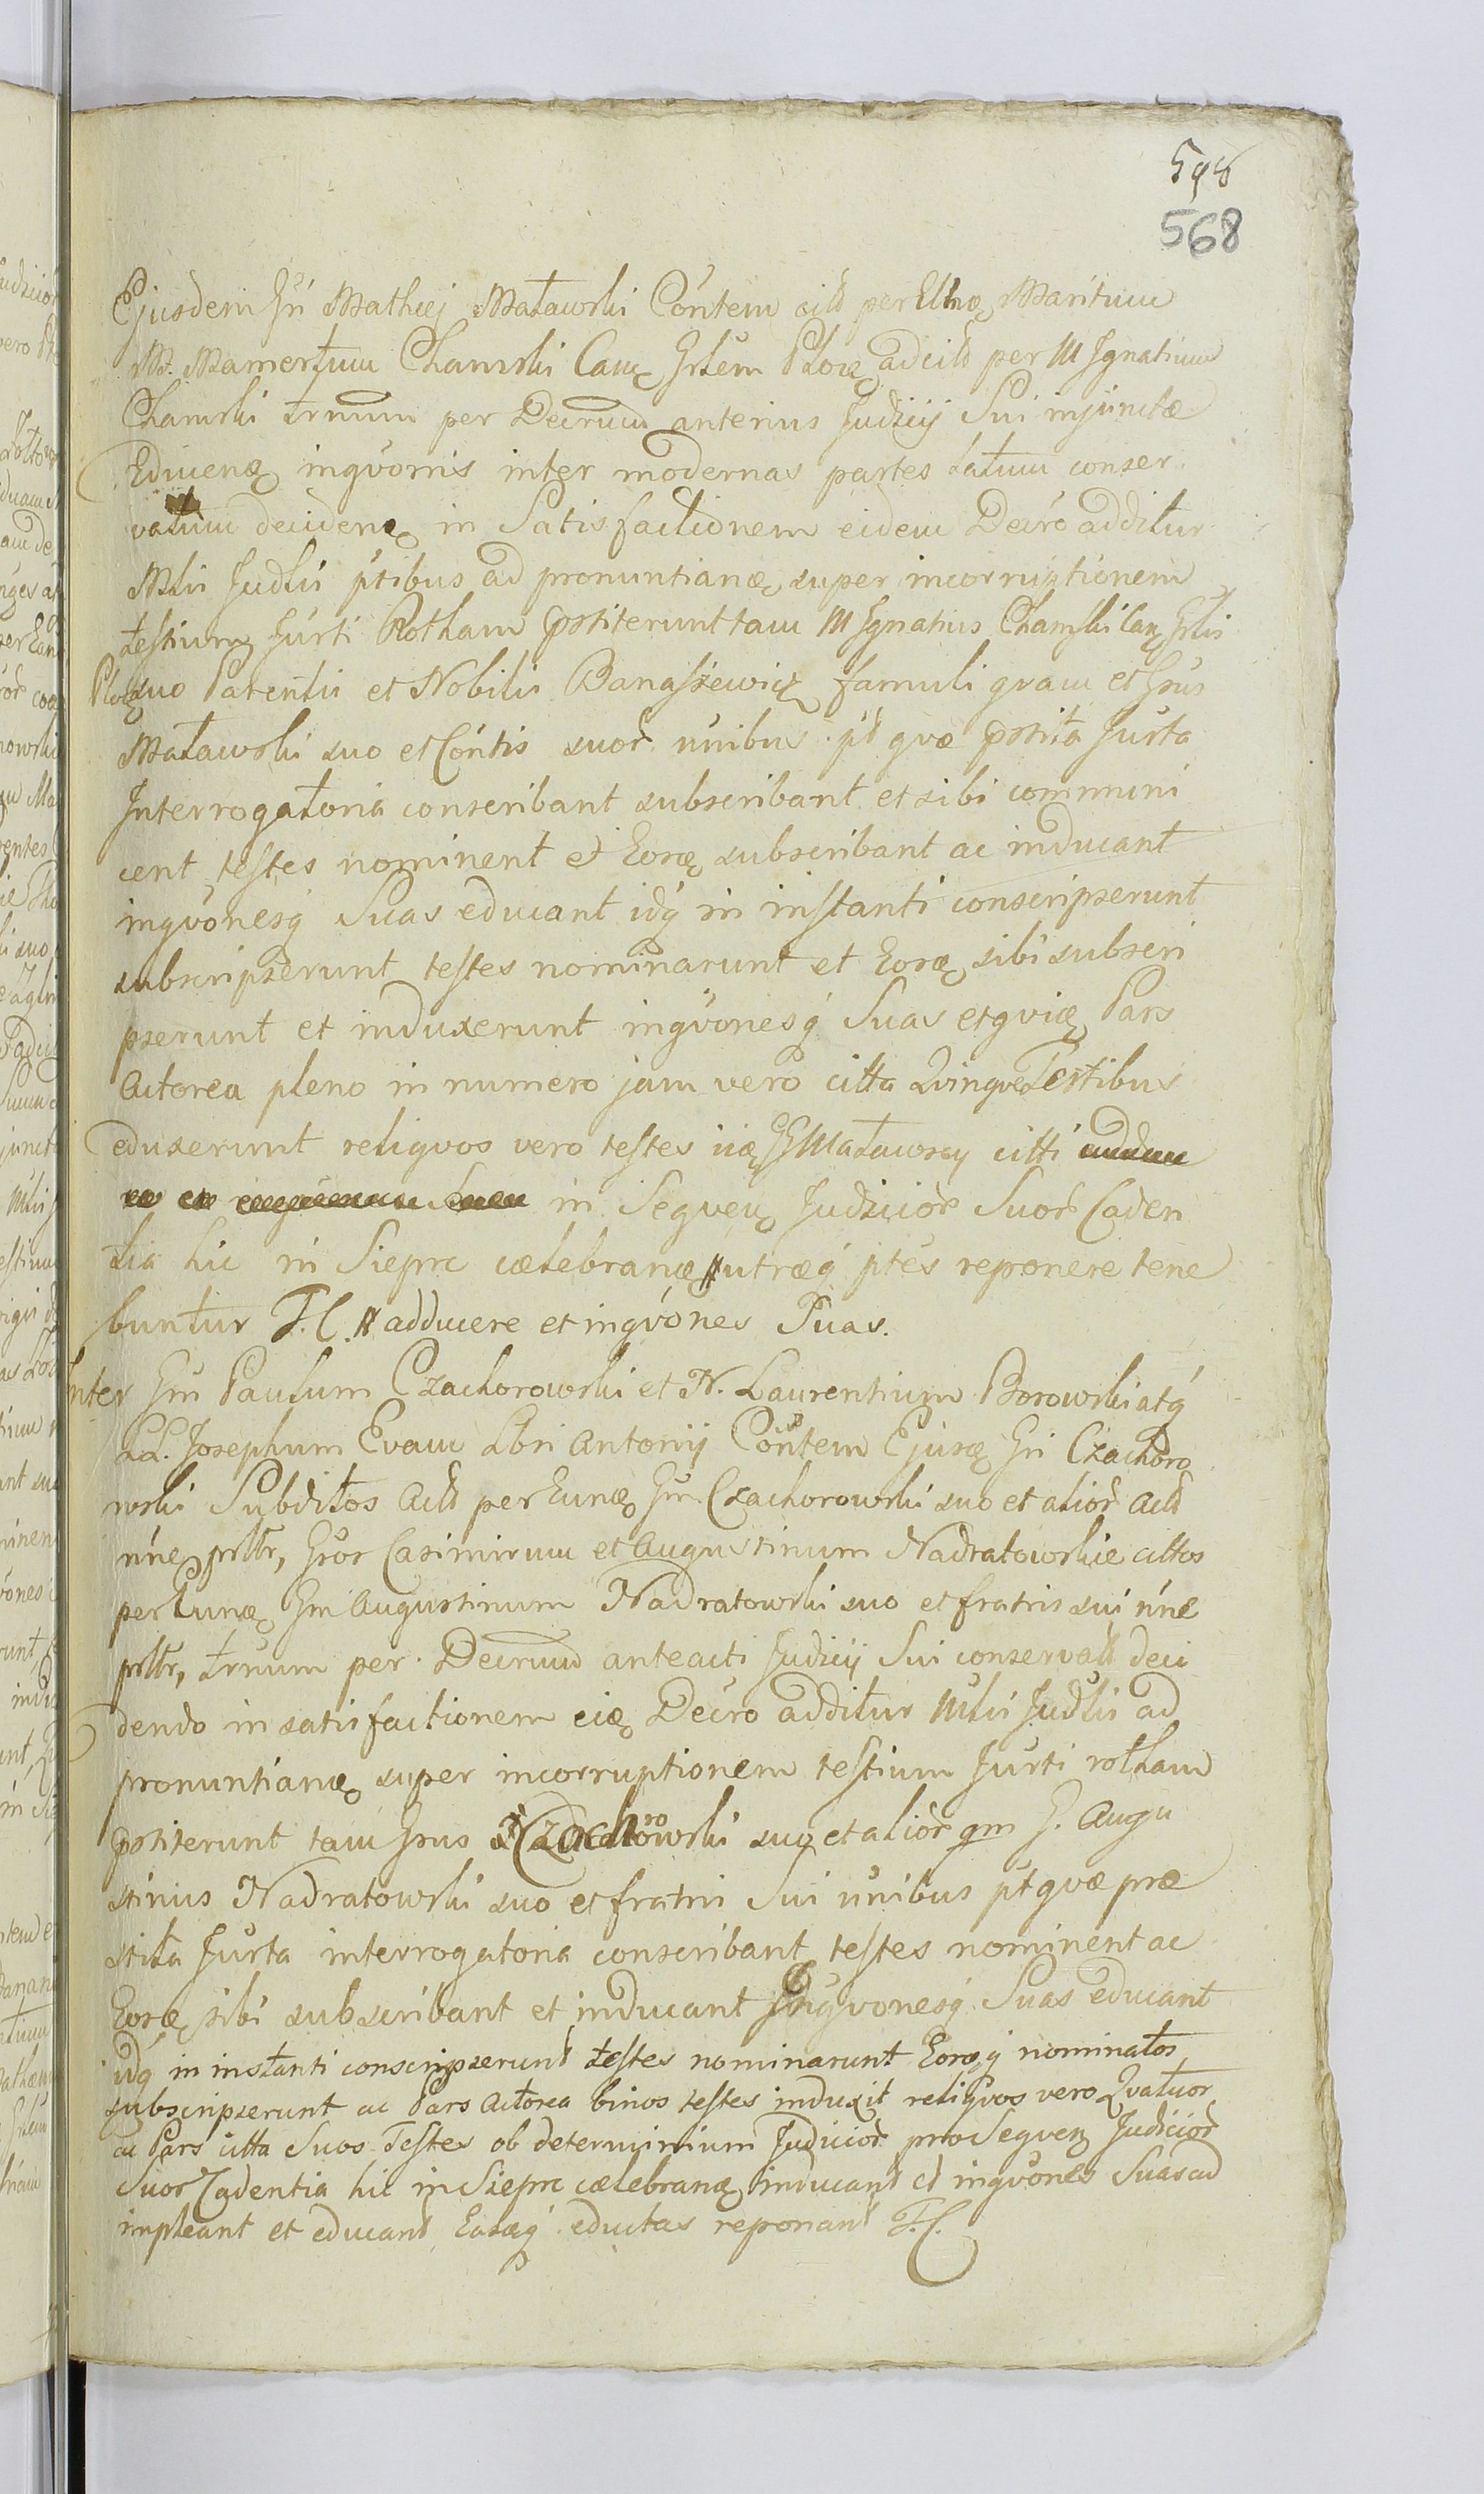 598
568
Ejusdem Gri Mathiej Małowski Contem per Maritum
M. Mamertum Chamski Cam per M Ignatium
Chamski trnum per Decrum anterius Judicij Sui injunctæ
inqvonis inter modernas partes latum conser
vatum in Satisfactionem eidem Decro additur
Mlri Judlii ptibus ad pronuntianę super incorruptionem
testium Jurti Rotham pstiterunt tam M Ignatius Chamski Can
suo Parentis et Nobilis Banaszewicz famuli qvam et Grus
Małowski suo et Contis suor nnibus qvæ pstita Jurta
Interrogatoria conscribant subscribant et sibi communi
cent testes nominent et Eosę subscribant ac inducant
inqvonesq Suas educant idq in instanti conscripserunt
subscripserunt testes nominarunt et Eosę sibi subscri
pserunt et induxerunt inqvonesq Suas et qvię Pars
Actorea pleno in numero jam vero citta Qvinqve Testibus
eduxerunt reliqvos vero testes citti
in Seqven Judicior Suor Caden
tia hic in Sieprc cælebranę # utræq ptes reponere tene
buntur T.C. # adducere et inqvones Suas.
Inter Grm Paulum Czachorowski et N. Laurentium Borowski atq
LL. Josephum Evam Lbri Antonij Contem Ejusę Gri Czachoro
wski Subditos Actt per Eunę Grm Czachorowski suo et alior Actt
nne prttr, Gros Casimirum et Augustinum Nadratowskie cittos
per Eunę Grm Augustinum Nadratowski suo et fratris sui nne
prttr, trnum per Decrum anteacti Judicij Sui conservatt deci
dendo in satisfactionem eię Decro additur Mlri Judlii ad
pronuntianę super incorruptionem testium Jurti rotham
pstiterunt tam Grus Czachorowski suo et alior qm G. Augu
stinus Nadratowski suo et fratris Sui nnibus pt qvæ præ
stita Jurta interrogatoria conscribant testes nominent ac
Eosę sibi subscribant et inducant Inqvonesq Suas educant
idq in instanti conscripserunt testes nominarunt Eosęq nominatos
subscripserunt ac Pars Actorea binos testes induxit reliqvos vero Qvatuor
ac Pars citta Suos Testes ob determinium Judicior pro Seqven Judicior
Suor Cadentia hic in Sieprc cælebranę inducant et inqvones Suas ad
impleant et educant Easęq eductas reponant T.C.